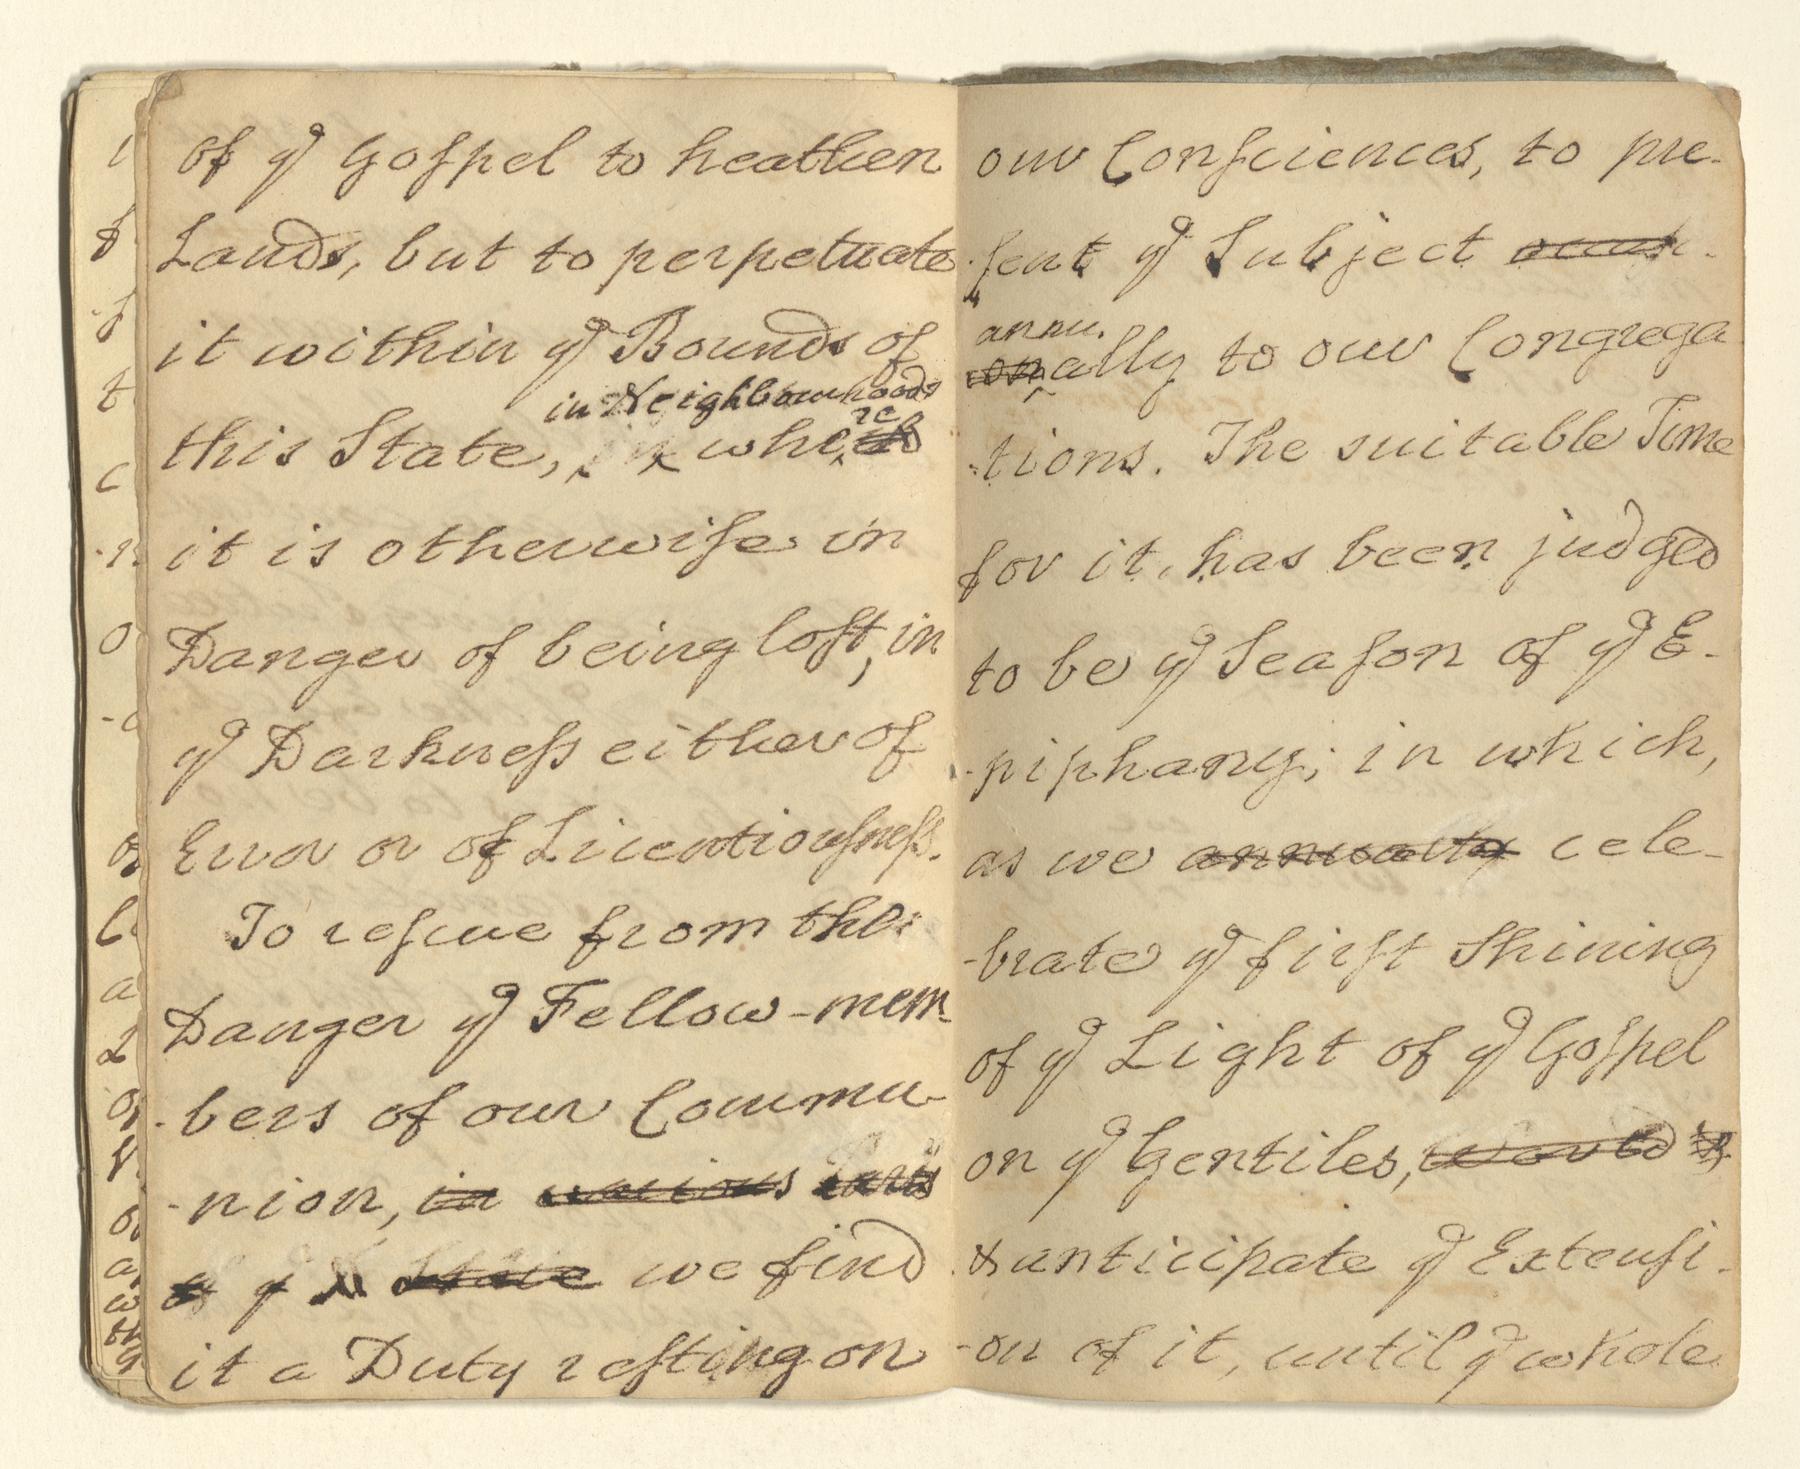 of ye Gospel to heathen
Lands, but to perpetuate
it within ye Bounds of
in Neighbourhoods
this State, in where
it is otherwise in
Danger of being lost, in
ye Darkness either of
Error or of Licentiousness.
To rescue from the
Danger ye Fellow-mem-
-bers of our Commu-
-nion, in various Parts
of ye State we find
it a Duty resting on
our Consciences, to pre-
-sent ye Subject
annu-
ally to our Congrega
-tions. The suitable Time
for it, has been judged
to be ye Season of ye E-
-piphany; in which,
as we annually cele-
-brate ye first Shining
of ye Light of ye Gospel
on ye Gentiles,
& anticipate ye Extensi-
-on of it, until ye whole